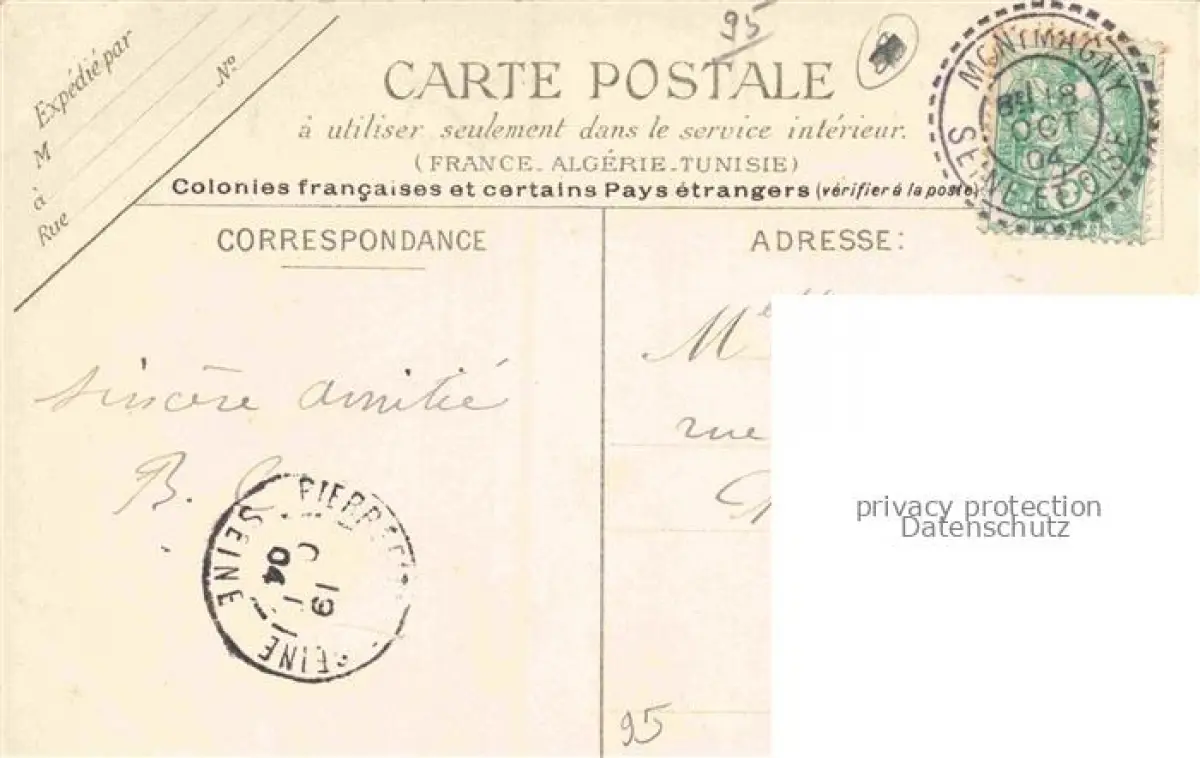 95
Expédié par
M
à
Rue
Nº
CARTE POSTALE
à utiliser seulement dans le service intérieur.
(FRANCE_ALGÉRIE_TUNISIE)
Colonies françaises et certains Pays étrangers (vérifier à la poste)
MONTMAGNY
18
OCT
04
SEINE ET OISE
CORRESPONDANCE
ADRESSE:
sincère amitié
B.
M
rue
PIERRE
19
04
SEINE
SEINE
privacy protection
Datenschutz
95